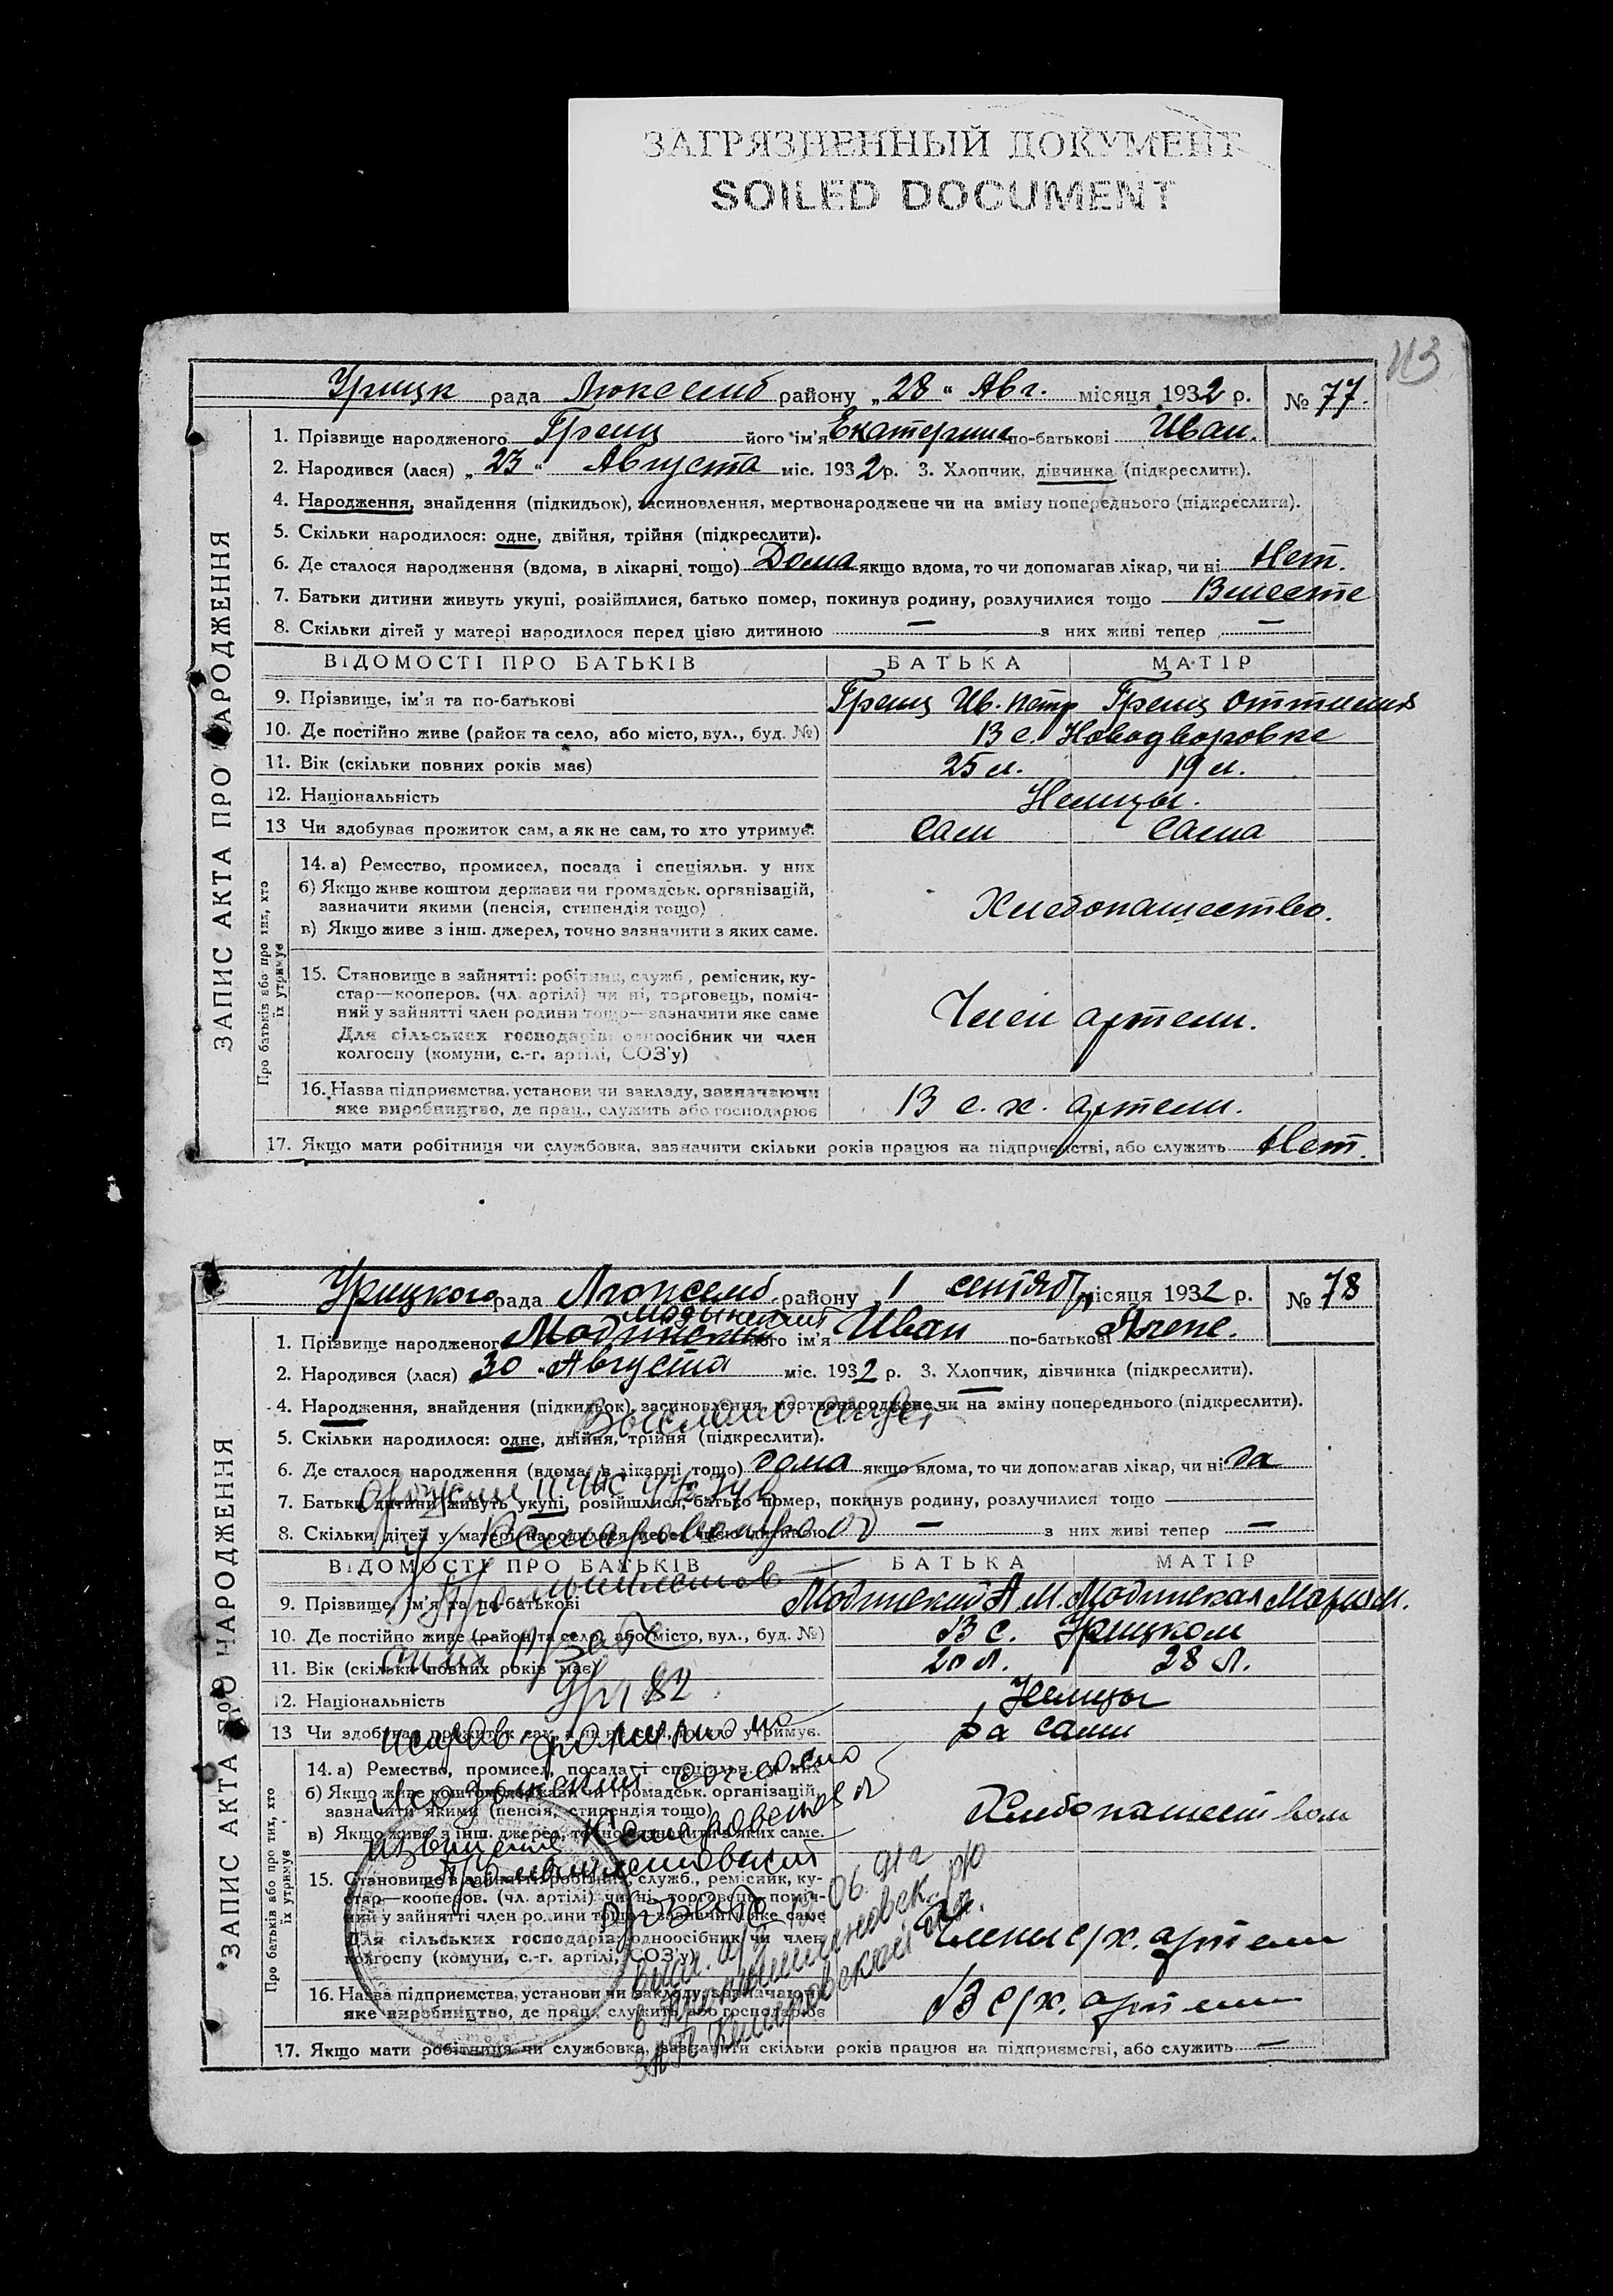 ЗАГРЯЗНЕННЫЙ ДОКУМЕНТ
SOILED DOCUMENT
113
Урицк рада Люксемб району „28“ Авг. місяця 1932 р. № 77.
1. Прізвище народженого Гренц його ім'я Екатерина по-батькові Иван.
2. Народився (лася) „23“ Августа міс. 1932 р. 3. Хлопчик, дівчинка (підкреслити).
4. Народження, знайдення (підкидьок), засиновлення, мертвонароджене чи на зміну попереднього (підкреслити).
5. Скільки народилося: одне, двійня, трійня (підкреслити).
6. Де сталося народження (вдома, в лікарні тощо) Дома якщо вдома, то чи допомагав лікар, чи ні Нет.
7. Батьки дитини живуть укупі, розійшлися, батько помер, покинув родину, розлучилися тощо Вместе
8. Скільки дітей у матері народилося перед цією дитиною — з них живі тепер —
ВІДОМОСТІ ПРО БАТЬКІВ БАТЬКА МАТІР
9. Прізвище, ім'я та по-батькові Гренц Ив. Петр Гренц Оттилия
10. Де постійно живе (район та село, або місто, вул., буд. №) В с. Новодворовке
11. Вік (скільки повних років має) 25 л. 19 л.
12. Національність Немцы.
13 Чи здобуває прожиток сам, а як не сам, то хто утримує. Сам Сама
14. а) Ремество, промисел, посада і спеціяльн. у них
б) Якщо живе коштом держави чи громадськ. організацій,
зазначити якими (пенсія, стипендія тощо)
Хлебопашество.
в) Якщо живе з інш. джерел, точно зазначити з яких саме.
15. Становище в зайнятті: робітник, служб., ремісник, ку-
стар—кооперов. (чл. артілі) чи ні, торговець, поміч-
ний у зайнятті член родини тощо—зазначити яке саме
Член артели.
Для сільських господарів: одноосібник чи член
колгоспу (комуни, с.-г. артілі, СОЗ'у)
16. Назва підприємства, установи чи закладу, зазначаючи
яке виробництво, де прац., служить або господарює
В с. х. артели.
17. Якщо мати робітниця чи службовка, зазначити скільки років працює на підприємстві, або служить Нет.
ЗАПИС АКТА ПРО НАРОДЖЕННЯ
Про батьків або про тих, хто
їх утримує
Урицкого рада Люксемб. району 1 сентяб місяця 1932 р. № 78
Модынский
1. Прізвище народженого Модинский його ім'я Иван по-батькові
2. Народився (лася) 30 „Августа міс. 1932 р. 3. Хлопчик, дівчинка (підкреслити).
4. Народження, знайдення (підкидьок), засиновлення, мертвонароджене чи на зміну попереднього (підкреслити).
5. Скільки народилося: одне, двійня, трійня (підкреслити).
6. Де сталося народження (вдома, в лікарні тощо) дома якщо вдома, то чи допомагав лікар, чи ні да
7. Батьки дитини живуть укупі, розійшлися, батько помер, покинув родину, розлучилися тощо —
8. Скільки дітей у матері народилося перед цією дитиною — з них живі тепер —
ВІДОМОСТІ ПРО БАТЬКІВ БАТЬКА МАТІР
9. Прізвище, ім'я та по-батькові Модинский А. М. Модинская Мария М.
10. Де постійно живе (район та село, або місто, вул., буд. №) В с. Урицком
11. Вік (скільки повних років має) 20 л. 28 л.
12. Національність Немцы
13 Чи здобуває прожиток сам, а як не сам, то хто утримує. сами
14. а) Ремество, промисел, посада і спеціяльн. у них
б) Якщо живе коштом держави чи громадськ. організацій,
зазначити якими (пенсія, стипендія тощо)
Хлебопашеством
в) Якщо живе з інш. джерел, точно зазначити з яких саме.
15. Становище в зайнятті: робітник, служб., ремісник, ку-
стар—кооперов. (чл. артілі) чи ні, торговець, поміч-
ний у зайнятті член родини тощо—зазначити яке саме
Для сільських господарів: одноосібник чи член
Члены с/х. артели
колгоспу (комуни, с.-г. артілі, СОЗ'у)
16. Назва підприємства, установи чи закладу, зазначаючи
яке виробництво, де прац., служить або господарює
В с/х. артели
17. Якщо мати робітниця чи службовка, зазначити скільки років працює на підприємстві, або служить —
ЗАПИС АКТА ПРО НАРОДЖЕННЯ
Про батьків або про тих, хто
їх утримує